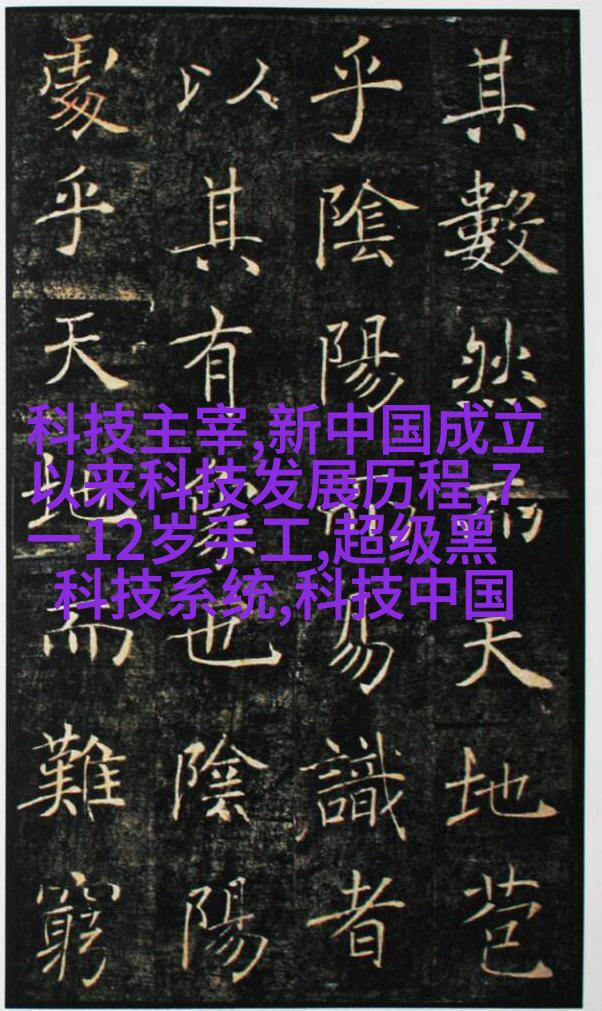 其數然而天地苞
乎陰陽而易識者
以其有象也陰陽
處乎天地而難窮
科技主宰,新中国成立
以来科技发展历程,7
一12岁手工,超级黑
科技系统,科技中国